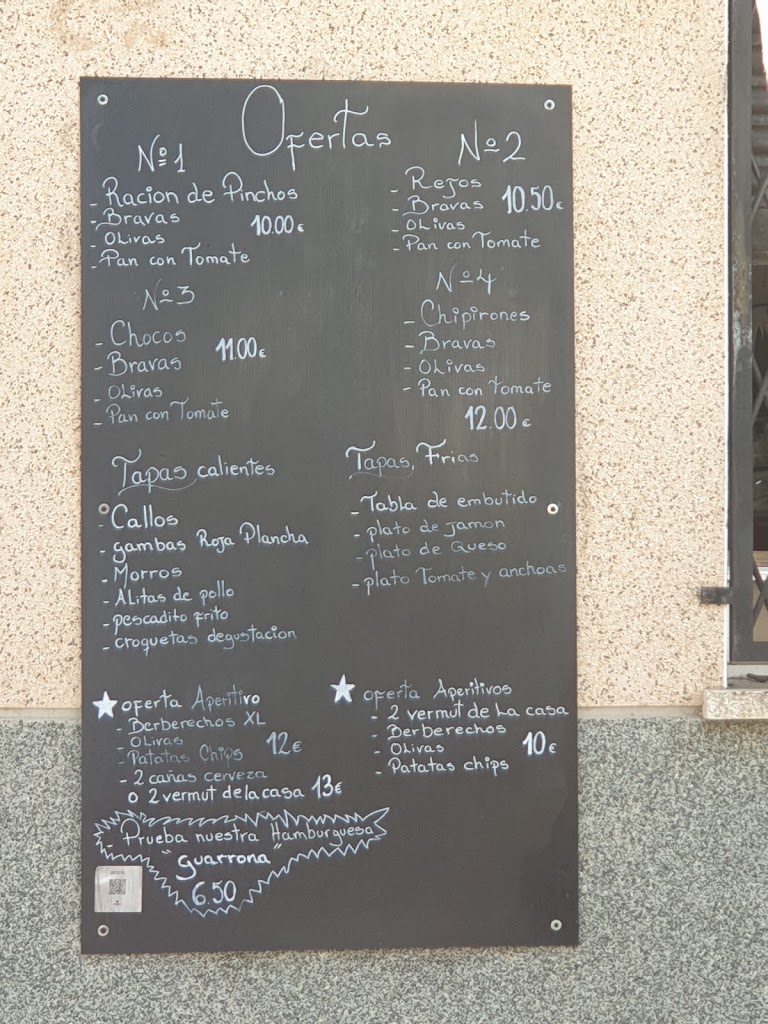 Ofertas
Nº1
- Racion de Pinchos
- Bravas
10.00€
- OLivas
- Pan con Tomate
Nº2
- Rejos
- Bravas 10.50€
- OLivas
- Pan con Tomate
Nº3
- Chocos
- Bravas 11.00€
- OLivas
- Pan con Tomate
Nº4
- Chipirones
- Bravas
- OLivas
- Pan con tomate
12.00€
Tapas calientes
- Callos
- gambas Roja Plancha
- Morros
- ALitas de pollo
- pescadito frito
- croquetas degustacion
Tapas, Frias
- Tabla de embutido
- plato de jamon
- plato de Queso
- plato Tomate y anchoas
★ oferta Aperitivo
- Berberechos XL
- OLivas
- Patatas Chips 12€
- 2 cañas cerveza
o 2 vermut de la casa 13€
★ oferta Aperitivos
- 2 vermut de La casa
- Berberechos
- OLivas 10€
- Patatas chips
- Prueba nuestra Hamburguesa
"guarrona"
6.50